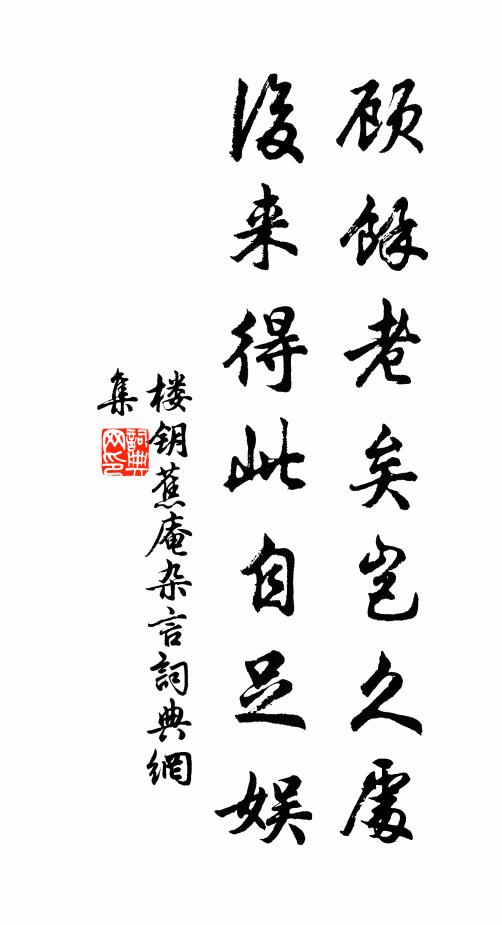 顾馀老矣岂久处
后来得此自足娱
楼钥蕉庵杂言詞典網
集
詞典
网印